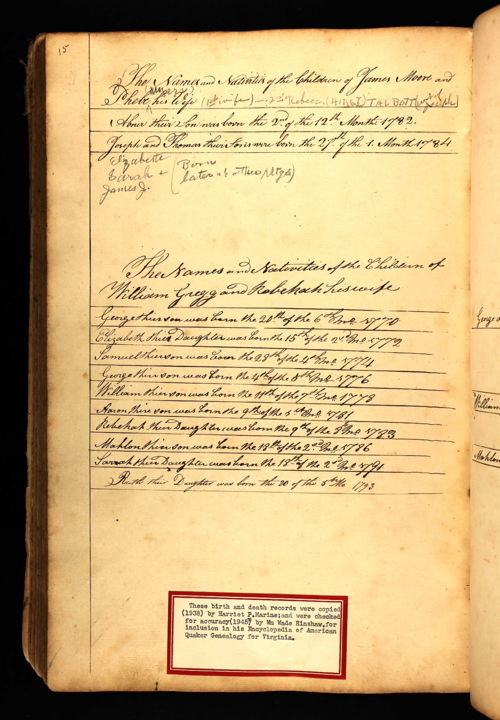 15
The Names and Nativities of the Children of James Moore and
Phebe his wife (1st wife) — 2nd Rebecca (HIRST) TALBOTT
Abner their Son was born the 2d of the 12th Month 1782.
Joseph and Thomas their Sons were born the 27th of the 1. Month 1784
Elizabeth
Sarah +
James J.
(Born
later at other Mtgs)
The Names and Nativities of the Children of
William Gregg and Rebekah his wife
George their son was born the 20th of the 6th Mo. 1770
Elizabeth their Daughter was born the 15th of the 2d Mo. 1772
Samuel their son was born the 28th of the 4th Mo. 1774
George their son was born the 4th of the 8th Mo. 1776
William their son was born the 11th of the 7th Mo. 1778
Aaron their son was born the 9th of the 5th Mo. 1781
Rebekah their Daughter was born the 9th of the 8th Mo. 1783
Mahlon their son was born the 18th of the 2nd Mo. 1786
Sarrah their Daughter was born the 18th of the 2d Mo. 1791
Ruth their Daughter was born the 20 of the 5th Mo 1793
These birth and death records were copied
(1938) by Harriet P. Marine; and were checked
for accuracy (1945) by Wm Wade Hinshaw, for
inclusion in his Encyclopedia of American
Quaker Genealogy for Virginia.
George
William
Mahlon